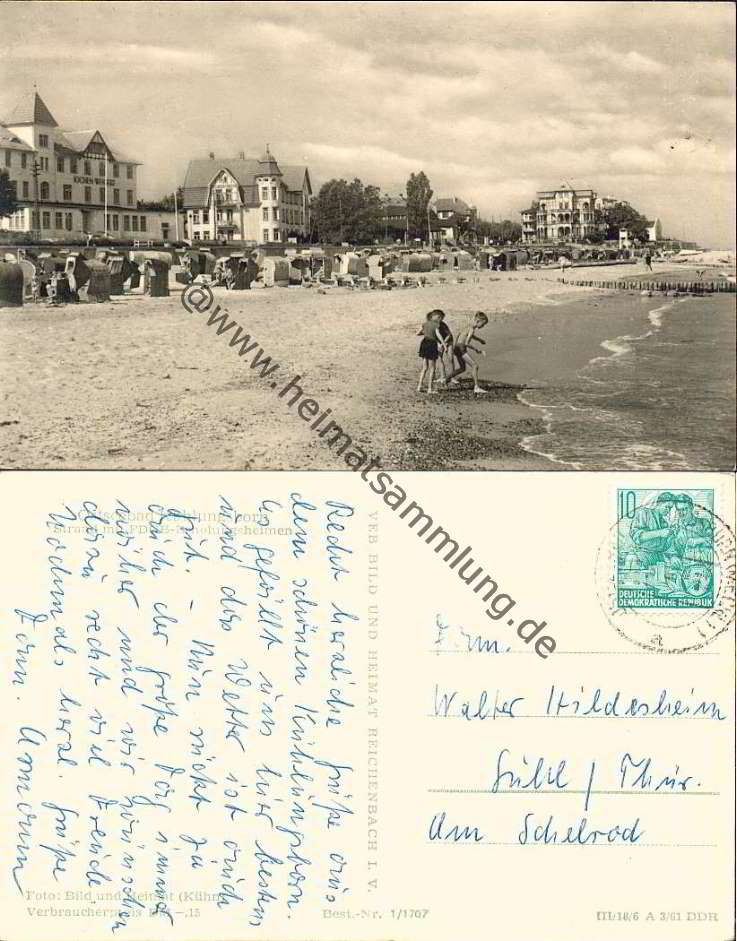 @www.heimatsammlung.de
Ostseebad Kühlungsborn
Strand mit FDGB-Erholungsheimen
Recht herzliche Grüße aus
dem schönen Kühlungsborn.
Es gefällt uns hier bestens
und das Wetter ist auch
gut. – Nun rückt ja
auch der große Tag immer
näher und wir wünschen
dazu recht viel Freude
Nochmals herzl. Grüße
Fam.
VEB BILD UND HEIMAT REICHENBACH I. V.
10
DEUTSCHE
DEMOKRATISCHE REPUBLIK
Fam.
Walter Hildesheim
Suhl / Thür.
Am Schelrod
Foto: Bild und Heimat (Kühn)
Verbraucherpreis MDN -.15
Best.-Nr. 1/1707
III/18/6 A 3/61 DDR